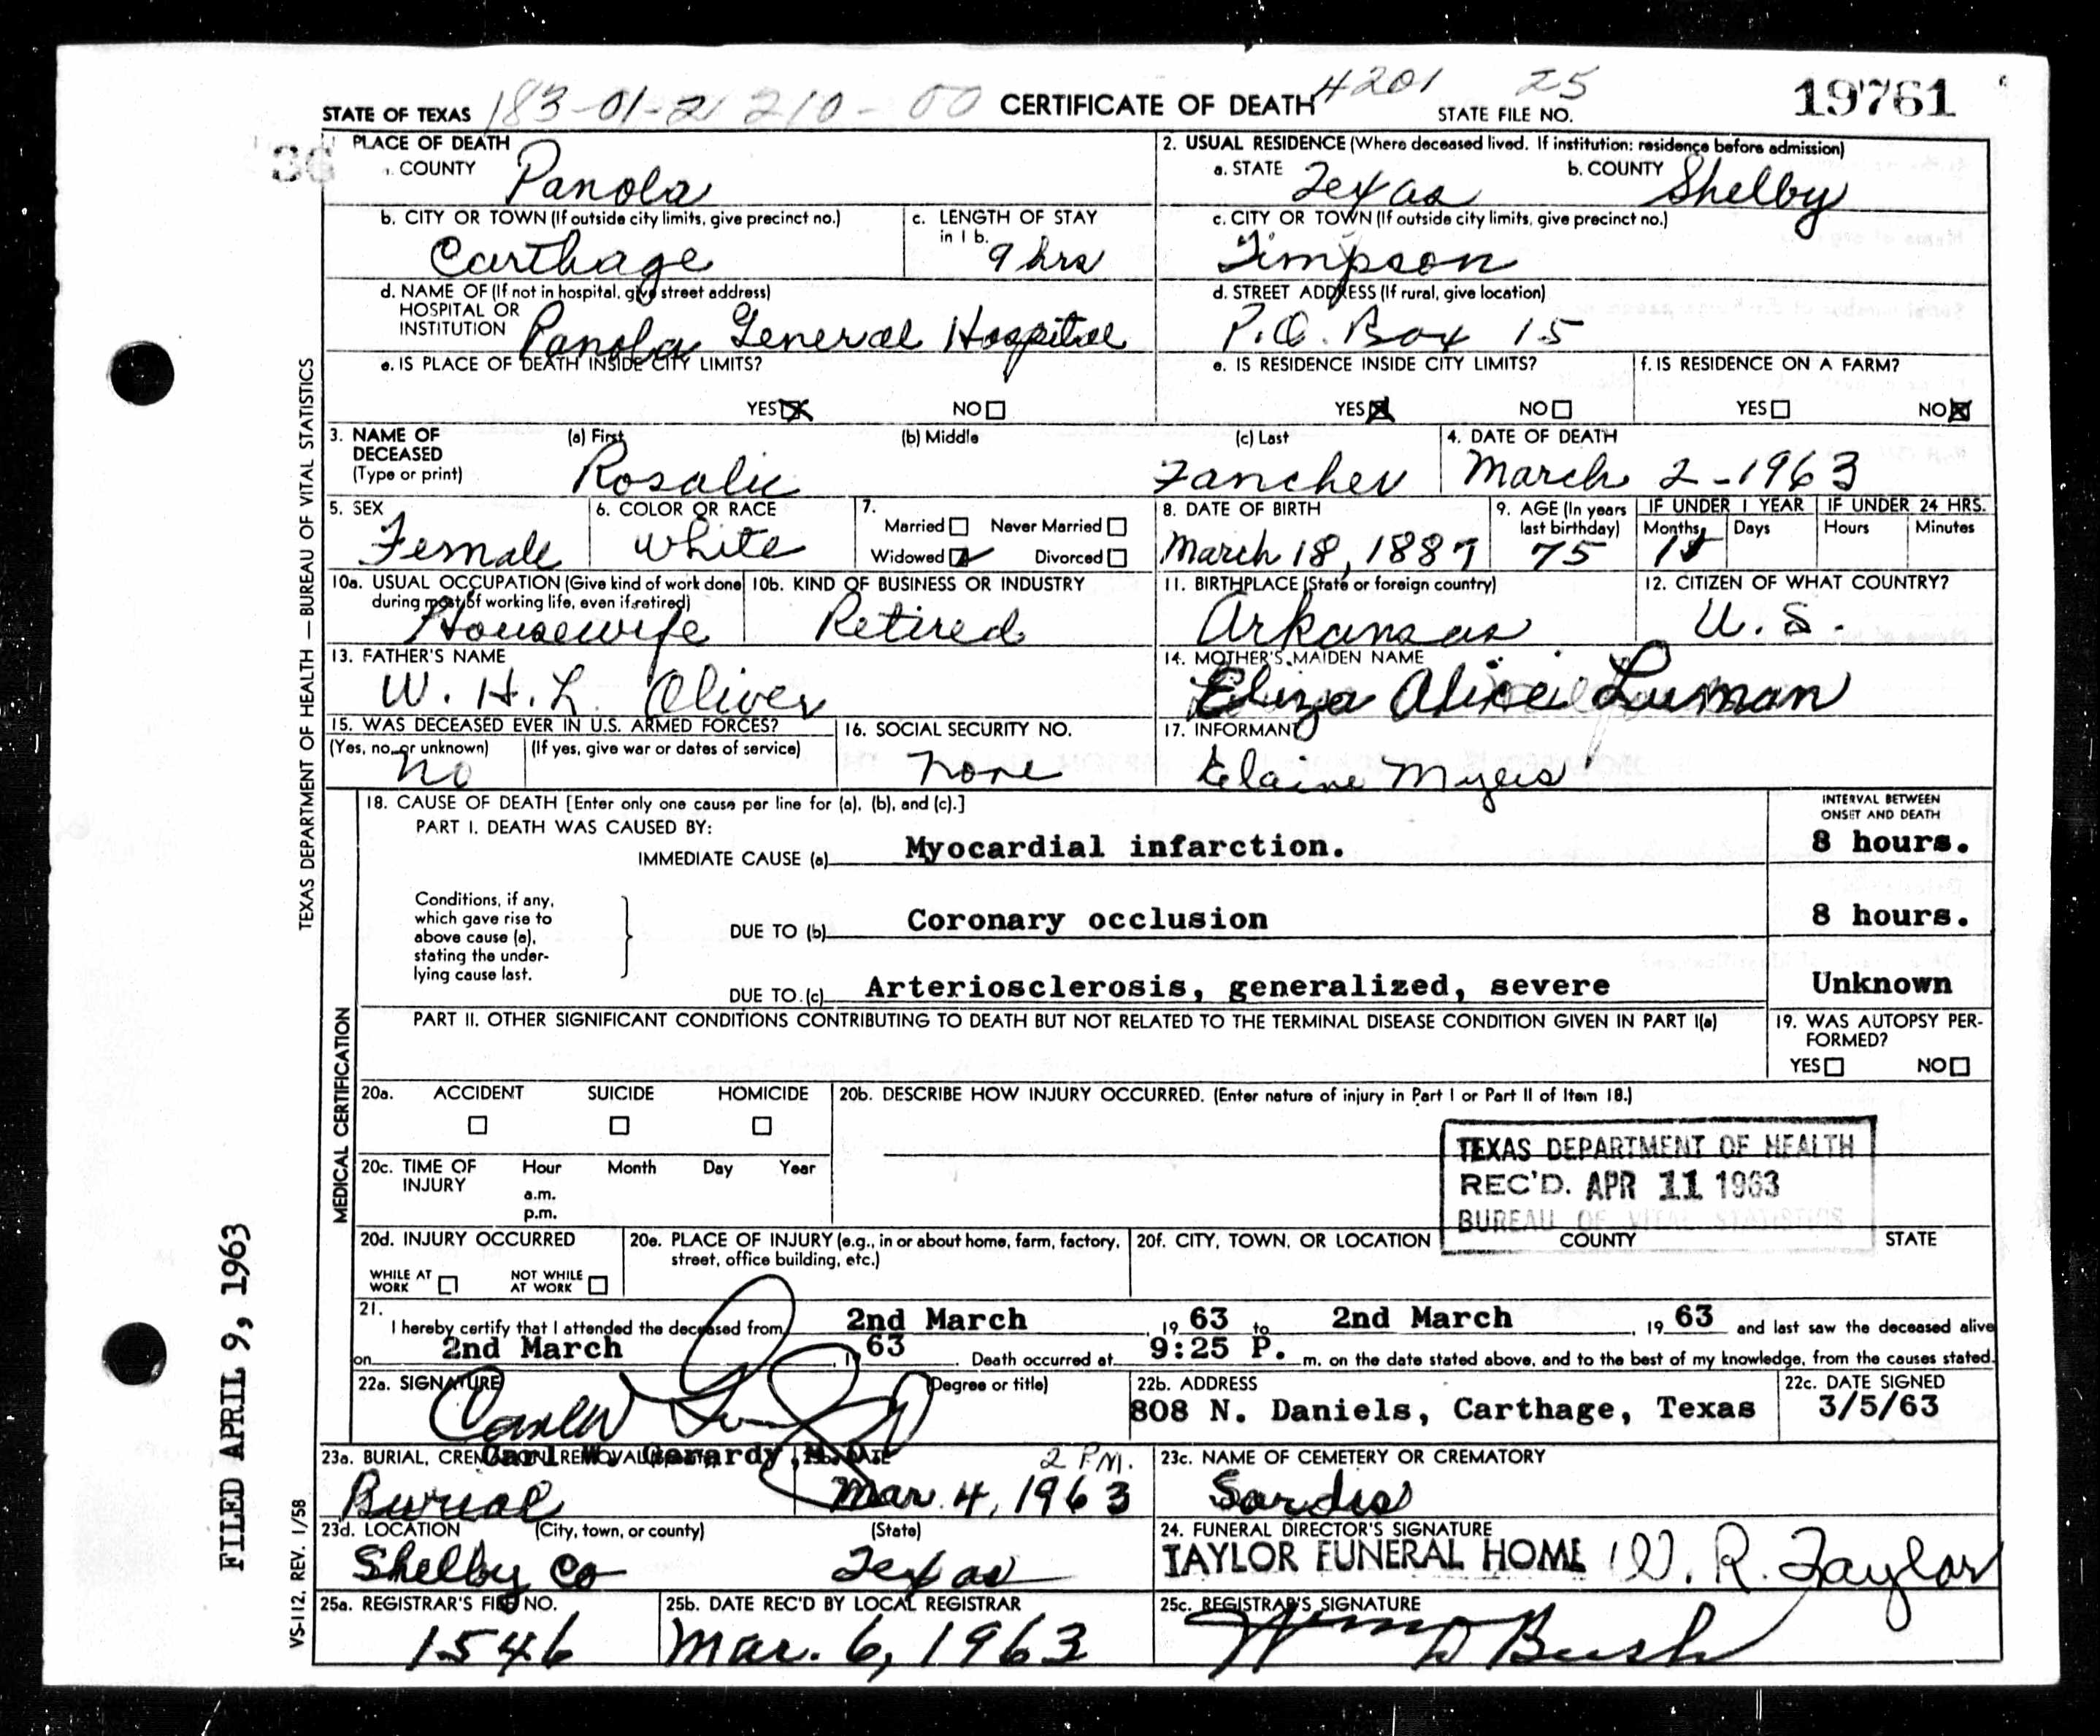 STATE OF TEXAS 183-01-2 210-00 CERTIFICATE OF DEATH 4201 25 STATE FILE NO. 19761
36
PLACE OF DEATH
a. COUNTY Panola
2. USUAL RESIDENCE (Where deceased lived. If institution: residence before admission)
a. STATE Texas b. COUNTY Shelby
b. CITY OR TOWN (If outside city limits, give precinct no.) Carthage
c. LENGTH OF STAY in 1 b. 9 hrs
c. CITY OR TOWN (If outside city limits, give precinct no.) Timpson
d. NAME OF (If not in hospital, give street address)
HOSPITAL OR
INSTITUTION Panola General Hospital
d. STREET ADDRESS (If rural, give location)
P.O. Box 15
e. IS PLACE OF DEATH INSIDE CITY LIMITS?
YES☒ NO☐
e. IS RESIDENCE INSIDE CITY LIMITS?
YES☒ NO☐
f. IS RESIDENCE ON A FARM?
YES☐ NO☒
3. NAME OF DECEASED (Type or print)
(a) First (b) Middle (c) Last
Rosalie Fancher
4. DATE OF DEATH
March 2-1963
5. SEX
Female
6. COLOR OR RACE
White
7.
Married☐ Never Married☐
Widowed☑ Divorced☐
8. DATE OF BIRTH
March 18, 1887
9. AGE (In years last birthday)
75
IF UNDER 1 YEAR IF UNDER 24 HRS.
Months Days Hours Minutes
11
10a. USUAL OCCUPATION (Give kind of work done during most of working life, even if retired)
Housewife
10b. KIND OF BUSINESS OR INDUSTRY
Retired
11. BIRTHPLACE (State or foreign country)
Arkansas
12. CITIZEN OF WHAT COUNTRY?
U. S.
13. FATHER'S NAME
W. H. L. Oliver
14. MOTHER'S MAIDEN NAME
Eliza Alice Luman
15. WAS DECEASED EVER IN U.S. ARMED FORCES?
(Yes, no, or unknown) (If yes, give war or dates of service)
no
16. SOCIAL SECURITY NO.
none
17. INFORMANT
Elaine Myers
18. CAUSE OF DEATH [Enter only one cause per line for (a), (b), and (c).]
PART I. DEATH WAS CAUSED BY:
IMMEDIATE CAUSE (a) Myocardial infarction.
INTERVAL BETWEEN ONSET AND DEATH
8 hours.
Conditions, if any,
which gave rise to
above cause (a),
stating the under-
lying cause last.
DUE TO (b) Coronary occlusion 8 hours.
DUE TO (c) Arteriosclerosis, generalized, severe Unknown
PART II. OTHER SIGNIFICANT CONDITIONS CONTRIBUTING TO DEATH BUT NOT RELATED TO THE TERMINAL DISEASE CONDITION GIVEN IN PART I(a)
19. WAS AUTOPSY PER-
FORMED?
YES☐ NO☐
20a. ACCIDENT SUICIDE HOMICIDE
☐ ☐ ☐
20b. DESCRIBE HOW INJURY OCCURRED. (Enter nature of injury in Part I or Part II of Item 18.)
20c. TIME OF INJURY
Hour Month Day Year
a.m.
p.m.
TEXAS DEPARTMENT OF HEALTH
REC'D. APR 11 1963
BUREAU OF VITAL STATISTICS
20d. INJURY OCCURRED
WHILE AT WORK ☐ NOT WHILE AT WORK ☐
20e. PLACE OF INJURY (e.g., in or about home, farm, factory, street, office building, etc.)
20f. CITY, TOWN, OR LOCATION COUNTY STATE
21.
I hereby certify that I attended the deceased from 2nd March, 19 63 to 2nd March, 19 63 and last saw the deceased alive
on 2nd March, 19 63. Death occurred at 9:25 P. m. on the date stated above, and to the best of my knowledge, from the causes stated.
22a. SIGNATURE (Degree or title)
Carl W. Gerardy, M.D.
22b. ADDRESS
808 N. Daniels, Carthage, Texas
22c. DATE SIGNED
3/5/63
23a. BURIAL, CREMATION, REMOVAL
Burial
DATE 2 P.M.
Mar. 4, 1963
23c. NAME OF CEMETERY OR CREMATORY
Sardis
23d. LOCATION (City, town, or county) (State)
Shelby Co Texas
24. FUNERAL DIRECTOR'S SIGNATURE
TAYLOR FUNERAL HOME W. R. Taylor
25a. REGISTRAR'S FILE NO.
1546
25b. DATE REC'D BY LOCAL REGISTRAR
Mar. 6, 1963
25c. REGISTRAR'S SIGNATURE
Wm D Bush
TEXAS DEPARTMENT OF HEALTH — BUREAU OF VITAL STATISTICS
MEDICAL CERTIFICATION
VS-112. REV. 1/58
FILED APRIL 9, 1963